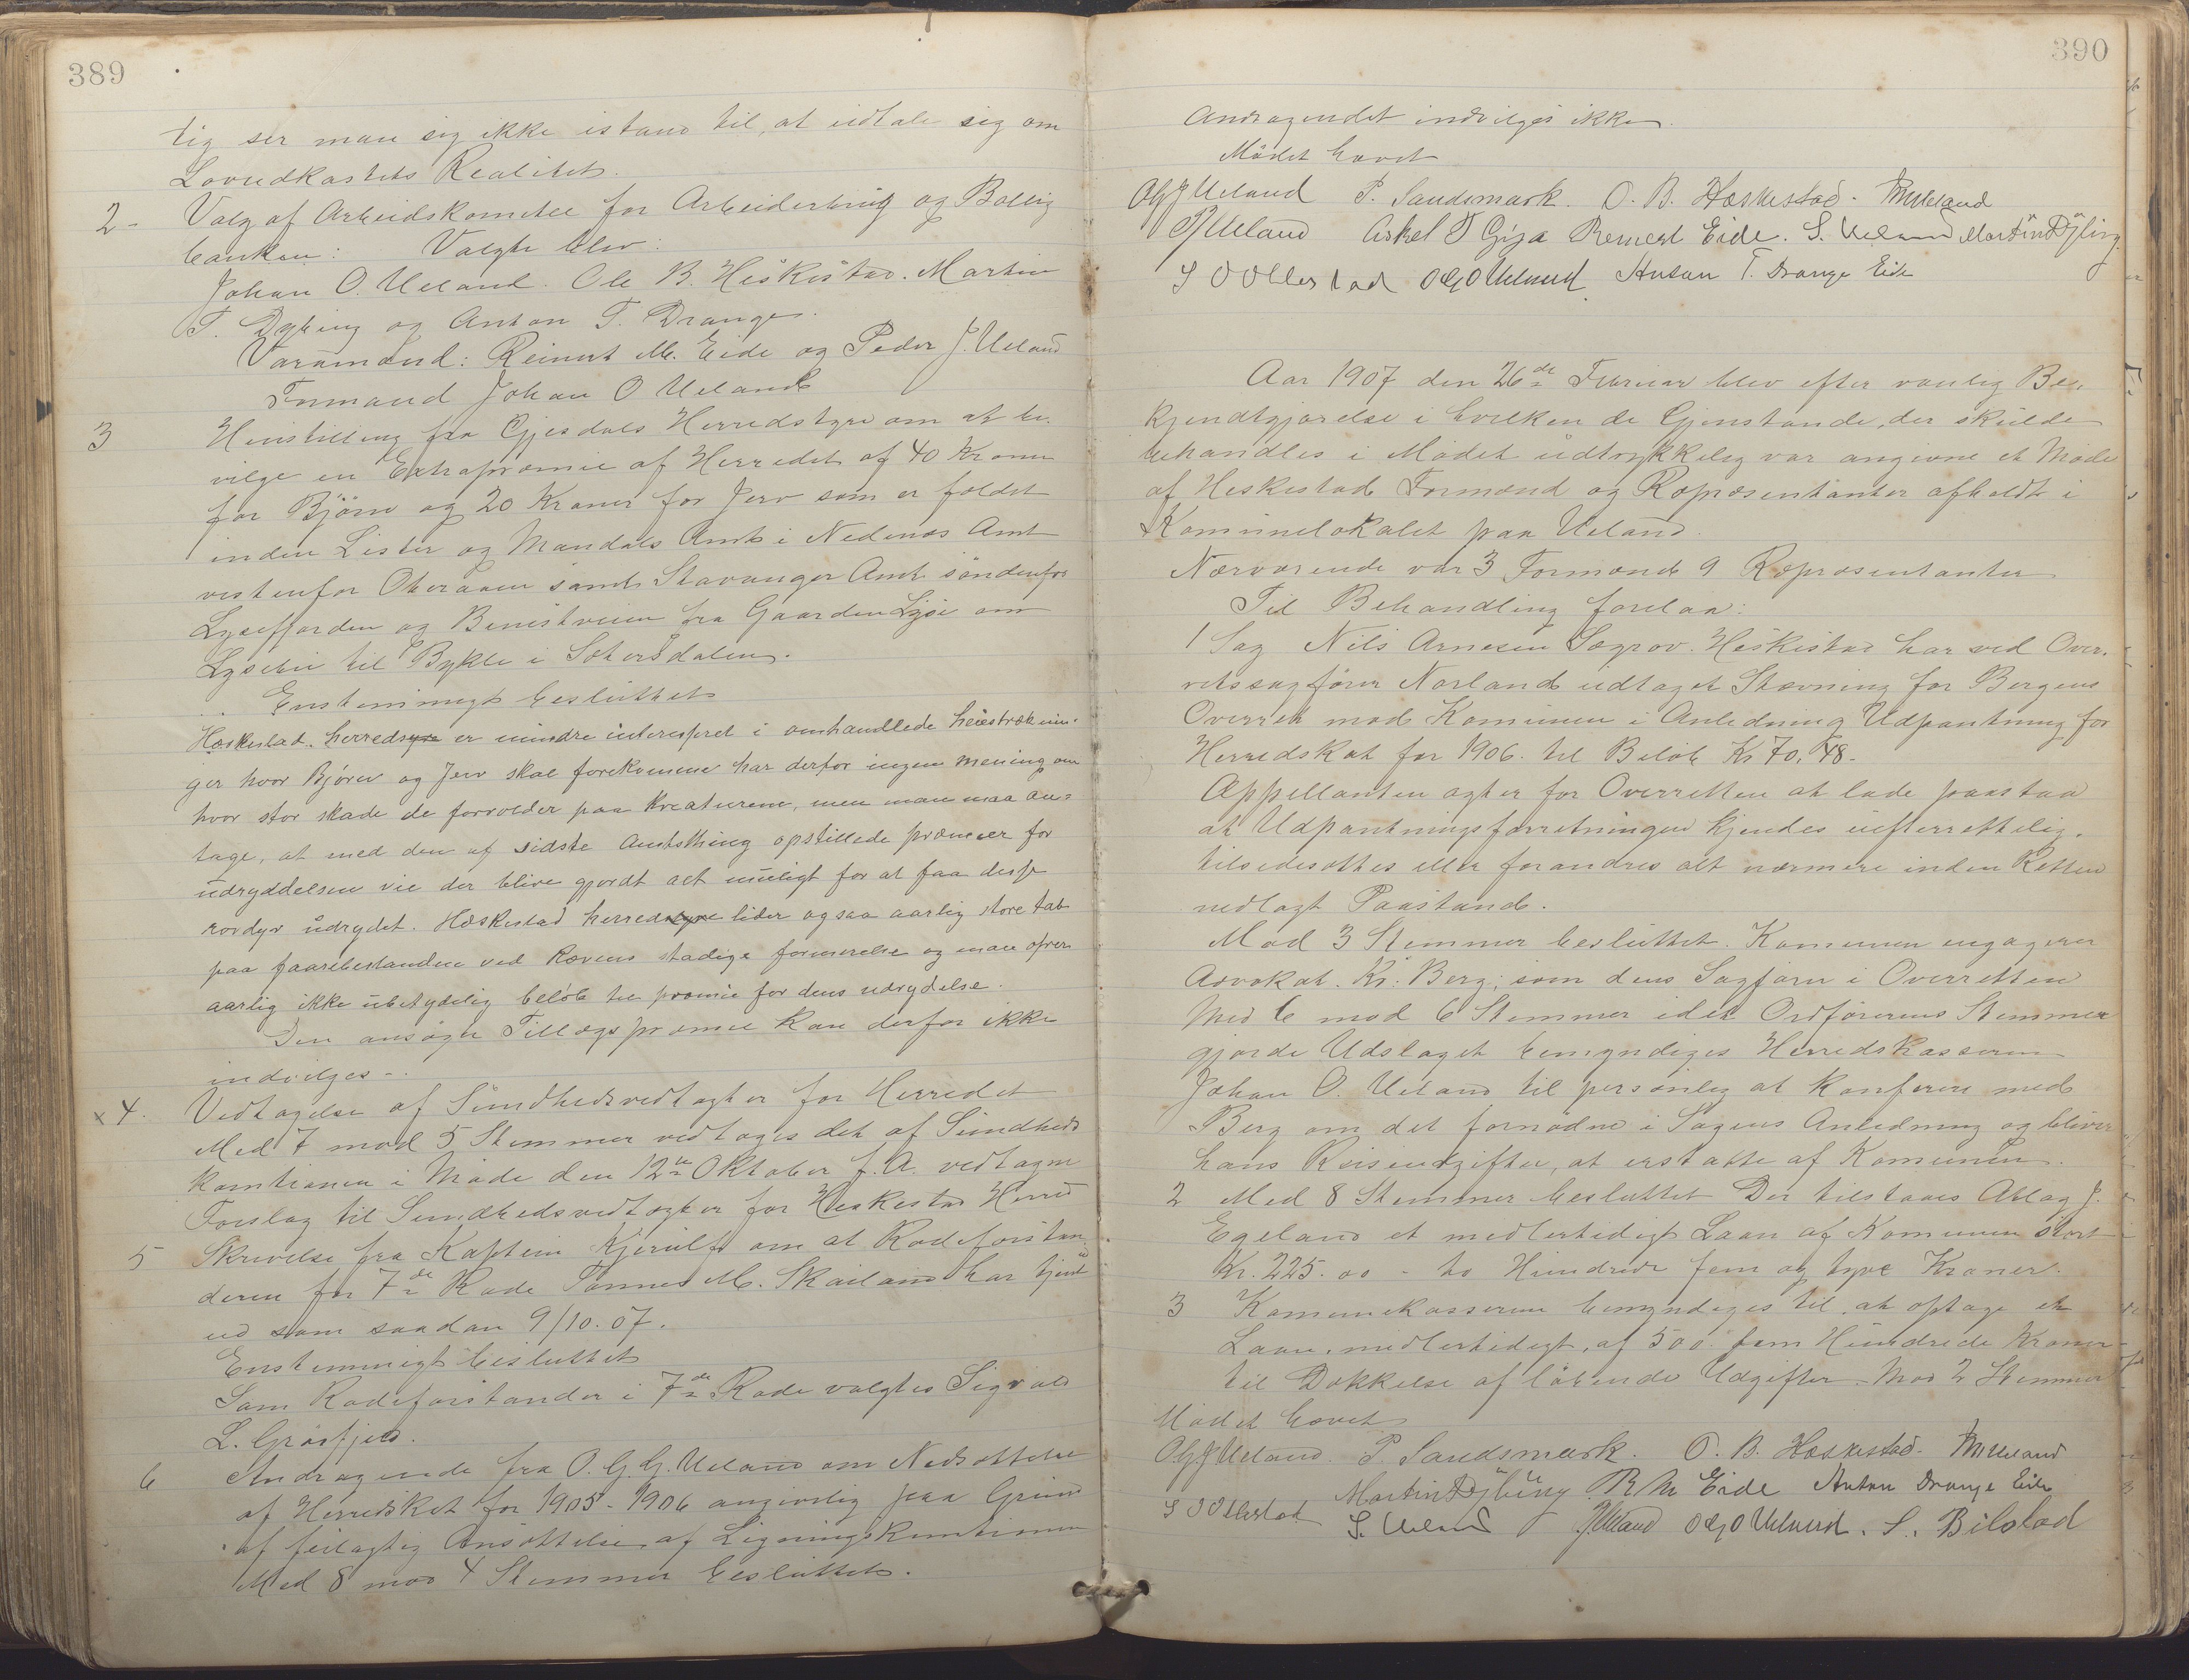 389
tig ser man sig ikke istand til, at udtale sig om
Lovudkastets Realitet.
2- Valg af Arbeidskomitee for Arbeiderbrug og Bolig
banken: Valgte blev:
Johan O. Ueland. Ole B. Heskestad. Martin
T. Dybing og Anton T. Drange.
Varamænd: Reinert M. Eide og Peder J. Ueland
Formand Johan O Ueland
3 Henstilling fra Gjesdals Herredstyre om at be-
vilge en Extrapræmie af Herredet af 40 Kroner
for Bjørn og 20 Kroner for Jerv som er fældet
inden Lister og Mandals Amt i Nedenæs Amt
vestenfor Oteraaen samt Stavanger Amt søndenfor
Lysefjorden og fra Gaarden Lyse om
Lysebu til Bykle i Sætersdalen.
Enstemmigt besluttet
Heskestad herredstyre er mindre interesseret i omhandlede heiestræknin-
ger hvor Bjørn og Jerv skal forekomme har derfor ingen mening om
hvor stor skade de forvolder paa kreaturene, men man maa an-
tage, at med den af sidste Amtsthing opstillede præmier for
udryddelsen vil der blive gjordt alt muligt for at faa disse
rovdyr udrydet. Heskestad herredstyre lider ogsaa aarlig store tab
paa faarebestanden ved Rævens stadige formerelse og man ofrer
aarlig ikke ubetydelig beløb til præmie for dens udrydelse.
Den ansøgte Tillægspræmie kan derfor ikke
indvilges -.
x 4. Vedtagelse af Sundhedsvedtægter for Herredet
Med 7 mod 5 Stemmer vedtages det af Sundheds
komtionen i Møde den 12te Oktober f. A. vedtagne
Forslag til Sundhedsvedtægter for Heskestad Herred
5 Skrivelse fra Kaptein Kjerulf om at Rodeforstan
deren for 7de Rode Tønnes M. Skailand har tjent
ud som saadan 9/10.07.
Enstemmigt besluttet
Som Rodeforstander i 7de Rode valgtes Sigvald
L. Gråsfjeld.
6 Andragende fra O. G. G. Ueland om Nedsættelse
af Herredskat for 1905-1906 angivelig paa Grund
af feilagtig Ansættelse af Ligningskomtionen
Med 8 mod 4 Stemmer besluttet.
390
Andragendet indvilges ikke.
Mødet hævet
OGJUeland P. Sandsmark. O. B. Heskestad. Ueland
PJUeland Askel T Gjza Reinert Eide. S. Ueland Martin Dybing
S O Ollestad OGOUeland Anton T. Drange Eide
Aar 1907 den 26de Februar blev efter vanlig Be-
kjendtgjørelse i hvilken de Gjenstande, der skulde
behandles i Mødet udtrykkelig var angivne et Møde
af Heskestad Formænd og Repræsentanter afholdt i
Komunelokalet paa Ueland.
Nærværende var 3 Formænd 9 Repræsentanter
Til Behandling forelaa:
1 Sag Nils Arnesen Sægrov. Heskestad har ved Over-
retssagfører Norland udtaget Stævning for Bergens
Overret mod Komunen i Anledning Udpantning for
Herredskat for 1906. til Beløb Kr 70,48-
Appellanten agter for Overretten at lade paastaa
at Udpantningsforretningen kjendes uefterrettelig,
tilsidesættes eller forandres alt nærmere inden Retten
nedlagt Paastand.
Mod 3 Stemmer besluttet. Komunen engagerer
Advokat. Kr: Berg; som dens Sagfører i Overretten
Med 6 mod 6 Stemmer idet Ordførerens Stemme
gjorde Udslaget bemyndiges Herredskasseren
Johan O. Ueland til personlig at konferere med
Berg om det fornødne i Sagens Anledning og bliver
hans Reiseudgifter, at erstatte af Komunen.
2 Med 8 Stemmer besluttet Der tilstaaes Aslag J.
Egeland et midlertidigt Laan af Komunen stort
Kr. 225.00 - to Hundrede fem og tyve Kroner.
3 Komunekasseren bemyndiges til, at optage et
Laan, midlertidigt, af 500 fem Hundrede Kroner
til Dækkelse af løbende Udgifter - Mod 2 Stemmer
Mødet hævet
OGJUeland. P. Sandsmark. O. B. Heskestad- Ueland
Martin Dybing R M Eide Anton Drange Eide
S O Ollestad S. Ueland PJUeland OGOUeland. S. Bilstad